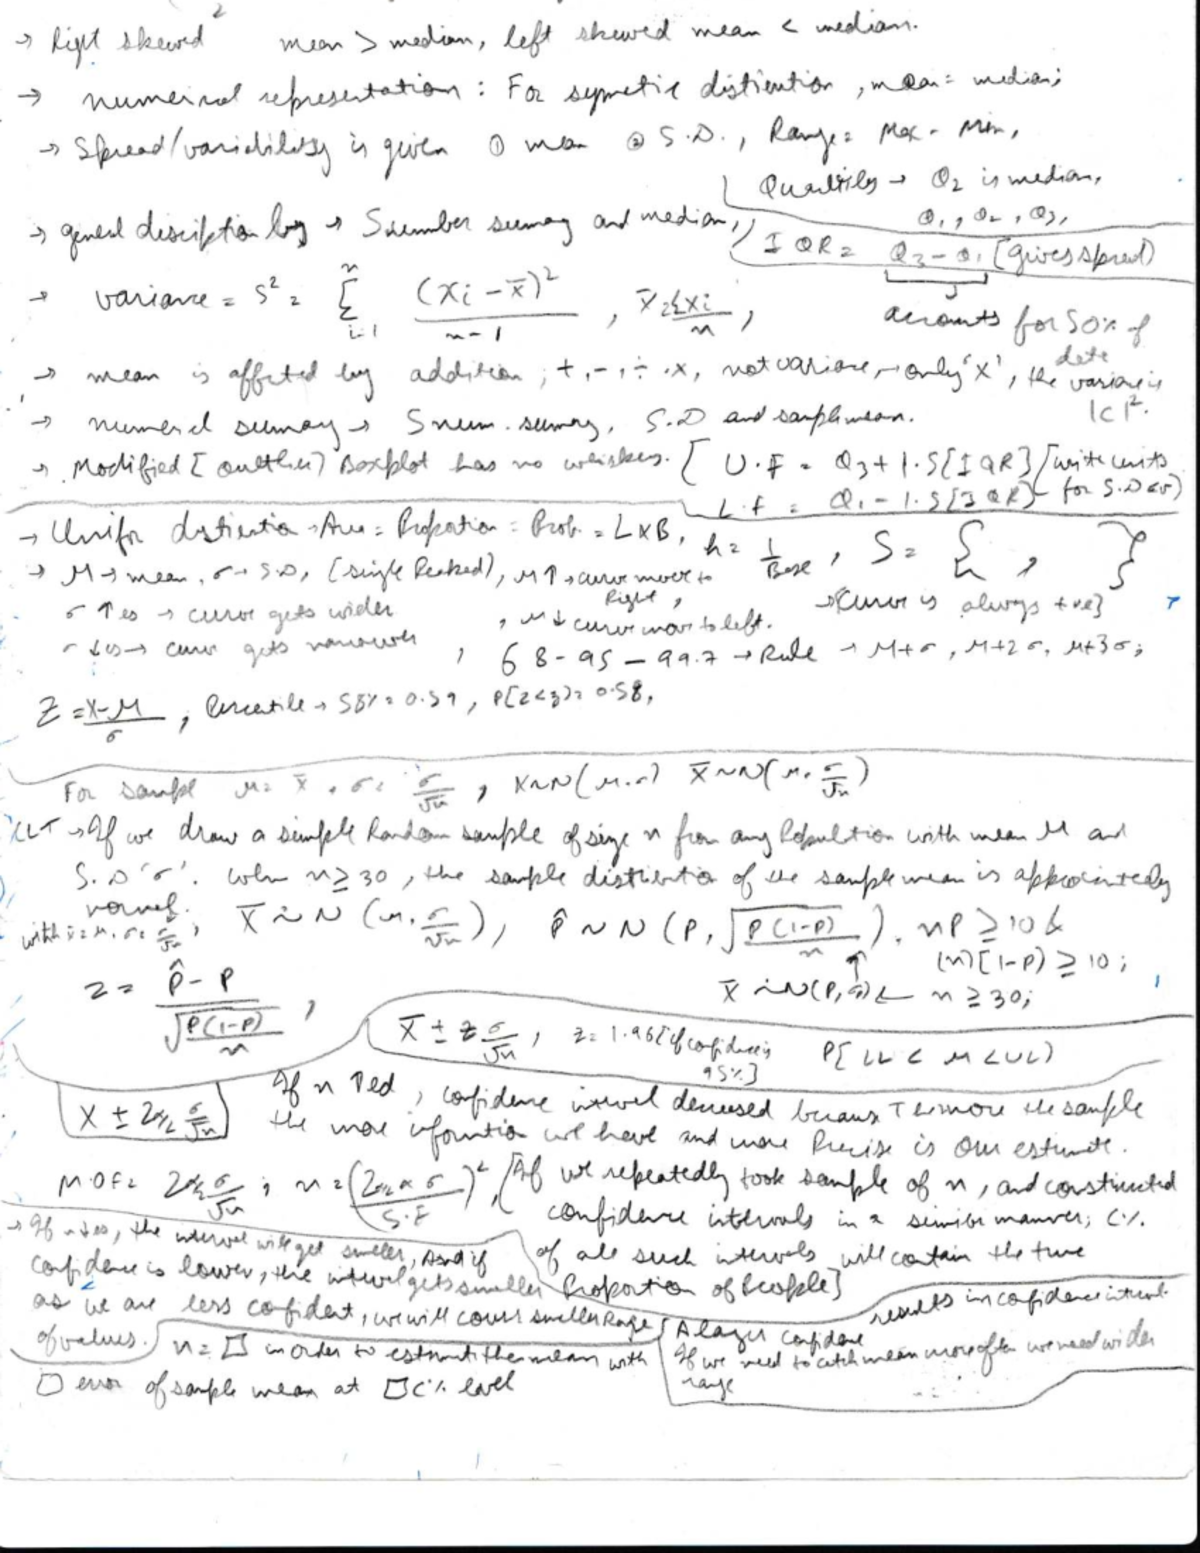 → Right skewed mean > median, left skewed mean < median.
→ numerical representation : For symetric distribution , mean = median;
→ Spread/variability is given ① mean ② S.D., Range = Max - Min,
Quartiles → Q2 is median,
Q1, Q2, Q3,
→ general description by → 5 number sumary and median,
IQR = Q3 - Q1 [gives spread)
→ variance = S² = Σ i=1 n (xi - x̄)² / n-1 , x̄ = Σxi / n ,
accounts for 50% of data
→ mean is affected by addition ; +, -, ÷, x, not variance, → only 'x', the variance is |c|².
→ numerical sumary → 5 num. sumary, S.D and sample mean.
→ Modified [outlier) Boxplot has no whiskers. [ U.F = Q3 + 1.5[IQR] [write units
L.F = Q1 - 1.5[IQR] for S.D
→ Unifor distribution → Area = Proportion = Prob. = L x B, h = 1/Base , S = { , }
→ μ → mean, σ → S.D, (single Peaked), μ↑ → curve move to Right,
→ curve is always +ve}
σ ↑es → curve gets wider , μ↓ curve move to left.
σ ↓es → curve gets narrower , 68 - 95 - 99.7 → Rule → μ+σ, μ+2σ, μ+3σ;
Z = x-μ / σ ; Percentile →
For sample μ = x̄ , σ = σ/√n , X~N(μ.σ) X̄~N(μ, σ/√n)
CLT → If we draw a simple Random sample of size n from any Population with mean μ and
S.D 'σ'. When n ≥ 30, the sample distribution of the sample mean is approximately
normal.
X̄ ~ N (μ, σ/√n), p̂ ~ N (P, √P(1-P)/n ). nP ≥ 10 &
(n)[1-P) ≥ 10;
n ≥ 30;
z = p̂ - P / √P(1-P)/n ,
X̄ ± z σ/√n , z = 1.96 [if confidence is 95%] P[ LL < μ < UL)
X ± zα/2 σ/√n
If n ↑ed, confidence interval decreased because the more the sample
the more information we have and more Precise is our estimate.
M.O.F = zα/2 σ/√n ; n = (zα/2 x σ / S.E)² , [If we repeatedly took sample of n, and constructed
confidence intervals in a similar manner; C%
of all such intervals will contain the true
Proportion of People]
the interval will get smaller, and if
confidence is lower, the interval gets smaller
as we are less confident, we will cover smaller Range
of values.
n = □ in order to estimate the mean with
□ error of sample mean at □ C% level
A larger confidence results in confidence interval
If we need to catch mean more often we need wider
range